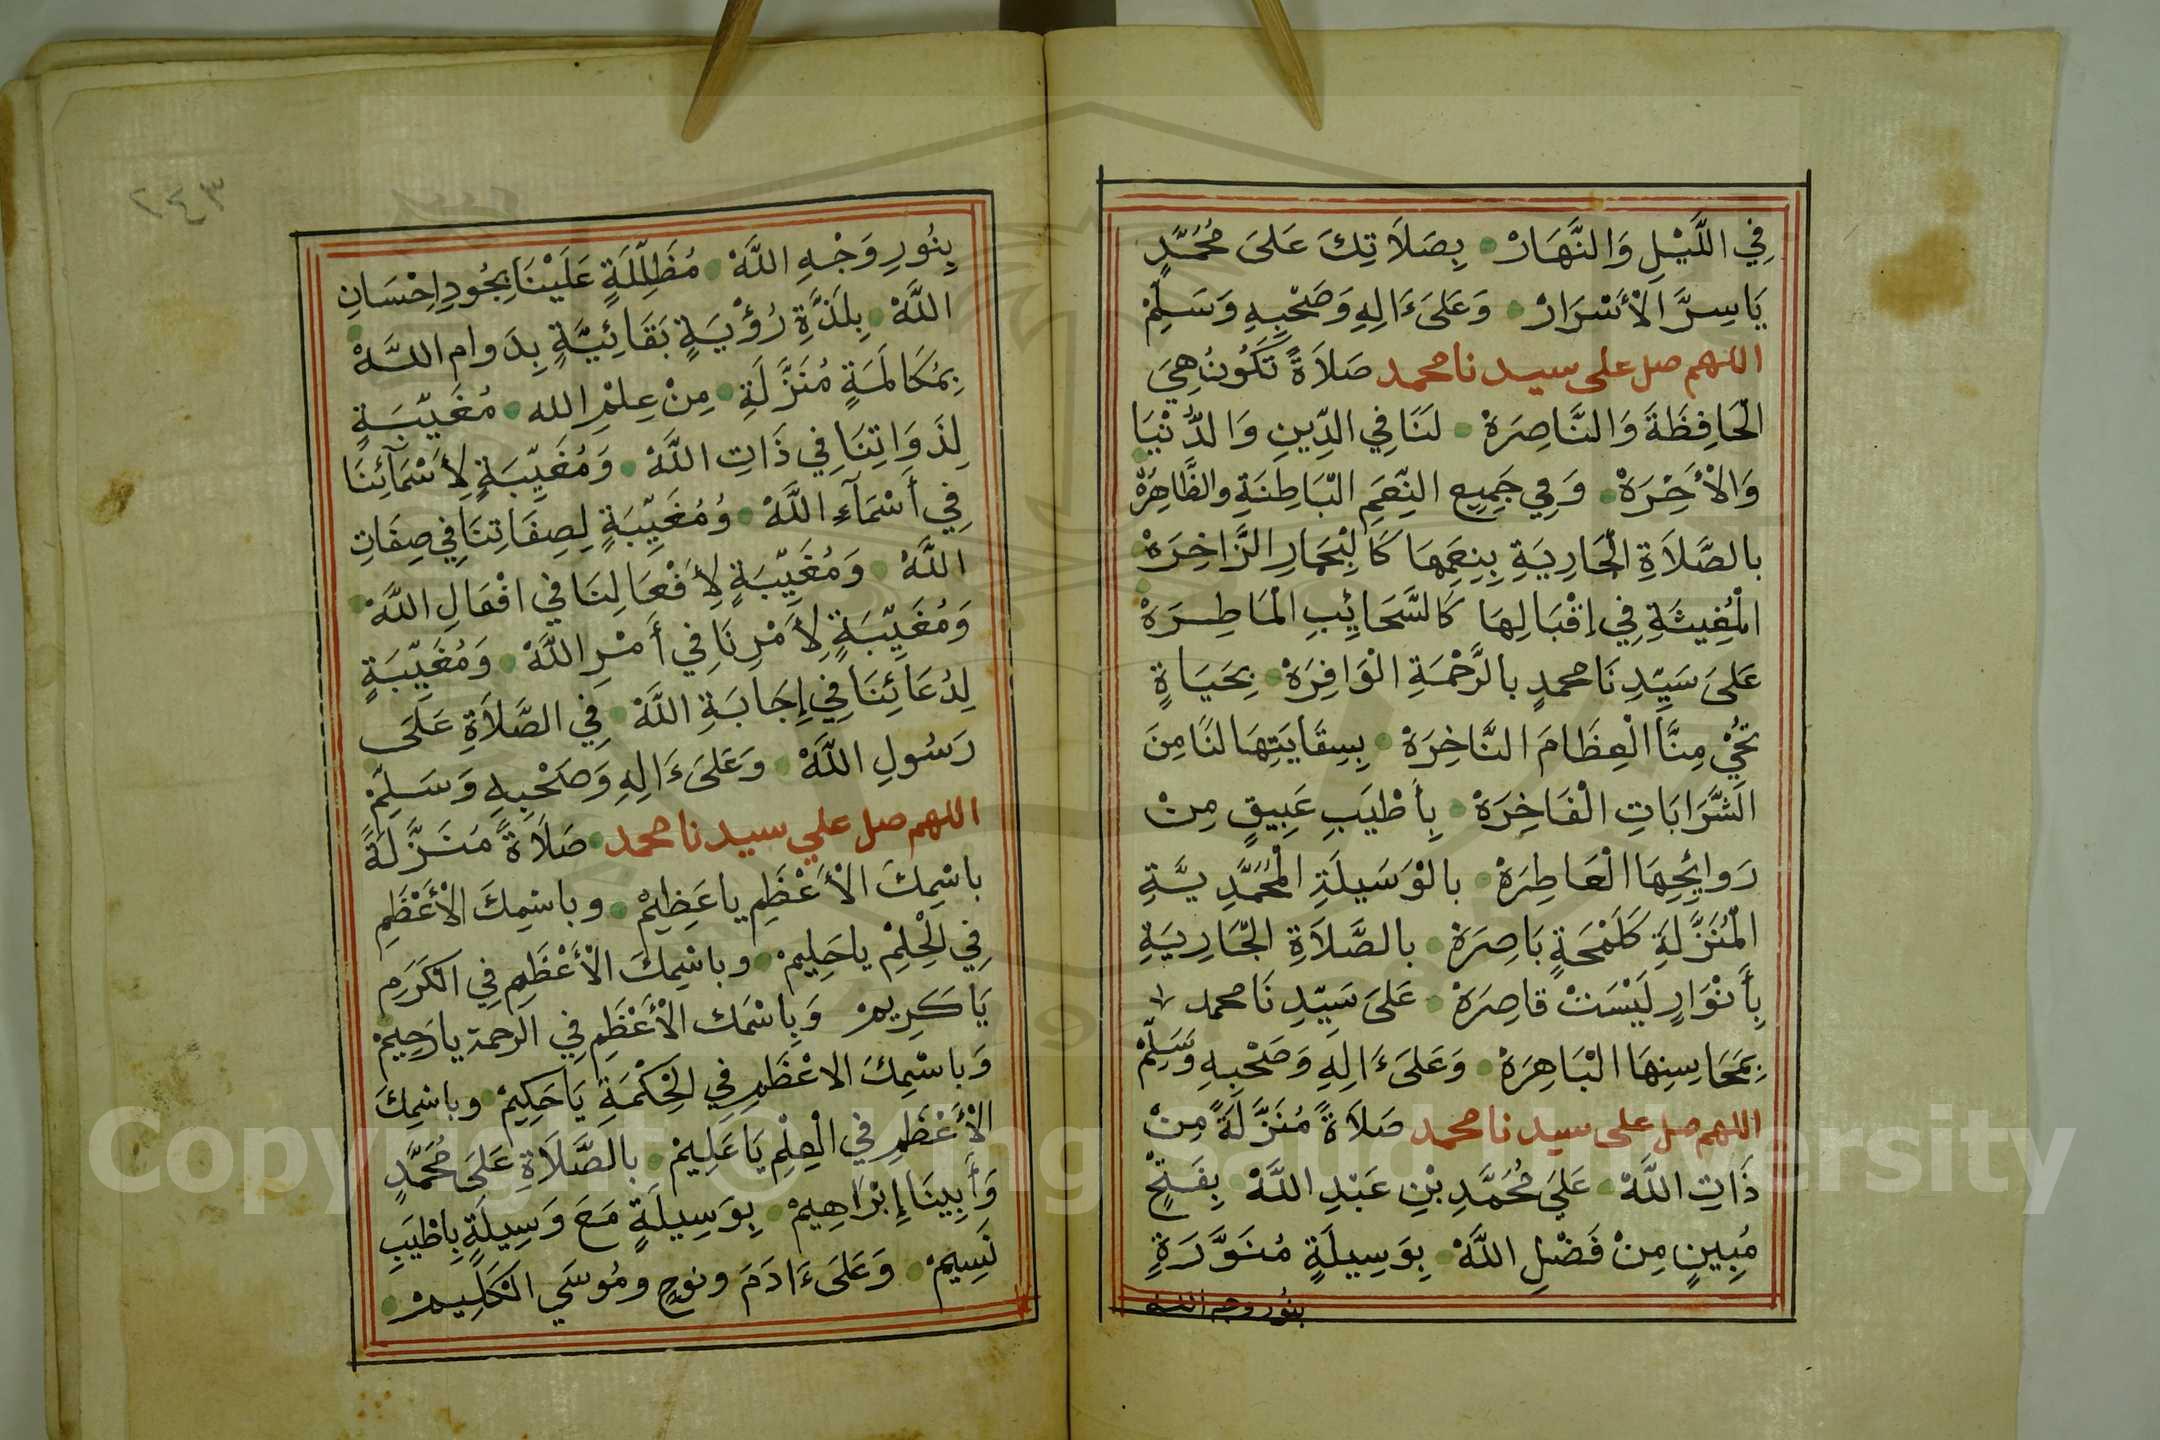 فِي اللَّيْلِ وَالنَّهَارْ بِصَلَاتِكَ عَلَى مُحَمَّدٍ
يَاسِرَّ الْأَسْرَارْ وَعَلَىَ ءَالِهِ وَصَحْبِهِ وَسَلِّمْ
اللهم صل على سيدنا محمد صَلَاةً تَكُونُ هِيَ
الْحَافِظَةَ وَالنَّاصِرَةْ لَنَا فِي الدِّينِ وَالدُّنْيَا
وَالْأَخِرَةْ وَفِي جَمِيعِ النِّعَمِ الْبَاطِنَةِ والظَّاهِرَةْ
بالصَّلَاةِ الْجَارِيَةِ بِنِعَمِهَا كَالْبِحَارِ الزَّاخِرَةْ
الْمُغِيثَةِ فِي إقْبَالِهَا كَالسَّحَايِبِ الْمَاطِرَةْ
عَلَىَ سَيِّدِنَا محمدٍ بالرَّحْمَةِ الْوَافِرَةْ بِحَيَاةٍ
تُحْيِ مِنَّا الْعِظَامَ النَّاخِرَةْ بِسِقَايَتِهَا لنَا مِنَ
الشَّرَابَاتِ الْفَاخِرَةْ بِأَطْيَبِ عَبِيقٍ مِنْ
رَوايِحِهَا الْعَاطِرَةْ بالْوَسَيلَةِ الْمُحَمَّدِيَّةِ
الْمُنَزَّلَةِ كَلَمْحَةٍ بَاصِرَةْ بالصَّلَاةِ الْجَّارِيَةِ
بِأَنْوَارٍ لَيْسَتْ قاصِرَةْ عَلىَ سَيِّدِنَا محمد
بِمَحَاسِنِهَا الْبَاهِرَةْ وَعَلَىَ ءَالِهِ وَصَحْبِهِ وَسَلِّمْ
اللهم صل على سيدنا محمد صَلَاةً مُنَزَّلَةً مِنْ
ذَاتِ اللَّهْ عَلَي مُحَمَّدِ بْنِ عَبْدِ اللَّهْ بِفَتْحٍ
مُبِينٍ مِنْ فَضْلِ اللَّهْ بِوَسِيلَةٍ مُنَوَّرَةٍ
بنُور وجه الله
٢٤٣
بِنُورِ وَجْهِ اللَّهْ مُظَلِّلَةٍ عَلَيْنَا بِجُودِ اِحْسَانِ
اللَّهْ بِلَذَّةِ رُؤْيَةٍ بَقَائِيَّةٍ بِدَوام اللَّهْ
بِمُكَالَمَةٍ مُنَزَّلَةِ مِنْ عِلْمِ الله مُغَيِّبَةٍ
لِذَوَاتِنَا فِي ذَاتِ اللَّهْ وَمُغَيِّبَةٍ لِأَسْمَآئِنَا
فِي أَسْمَآءِ اللَّهْ وُمُغَيِّبَةٍ لِصِفَاتِنَا فِي صِفَاتِ
اللَّهْ وَمُغَيِّبَةٍ لِأَفْعَالِنَا في افْعَالِ اللَّهْ
وَمُغَيِّبَةٍ لِأَمْرِنَا فِي أَمْرِ اللَّهْ وَمُغَيِّبَةٍ
لِدُعَائِنَا فِي إِجَابَةِ اللَّهْ فِي الصَّلَاةِ عَلَى
رَسُولِ اللَّهْ وَعَلَىَ ءَالِهِ وَصَحْبِهِ وَسَلِّمْ
اللهم صل علي سيدنا محمد صَلَاةً مُنَزَّلَةً
باسْمِكَ الْأَعْظَمِ يا عَظِيمْ وباسْمِكَ الْأَعْظَمِ
فِي الْحِلْمْ يا حَلِيمْ وباسْمِكَ الْأَعْظَمِ فِي الْكَرَمِ
يَا كَرِيمْ وَبِاسْمَك الْأَعْظَمِ فِي الرحمة يا رَحِيمْ
وَباسْمِكَ الاعْظَمِ فِي الْحِكْمَةِ يَا حَكِيمْ وباسْمِكَ
الْأَعْظَمِ فِي الْعِلْمِ يَا عَلِيمْ بِالصَّلَاةِ عَلَىَ مُحَمَّدٍ
وَأَبِينَا إِبْرَاهِيمْ بِوَسِيلَةٍ مَعَ وَسِيلَةٍ بِاطْيَبِ
نَسِيمْ وَعَلَىَ ءَادَمَ ونوحٍ ومُوسَي الْكَلِيمْ
Copyright © King Saud University